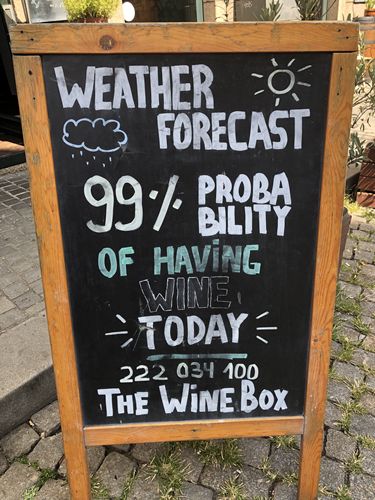 WEATHER
FORECAST
99% PROBA
BILITY
OF HAVING
WINE
TODAY
222 034 100
THE WINE BOX